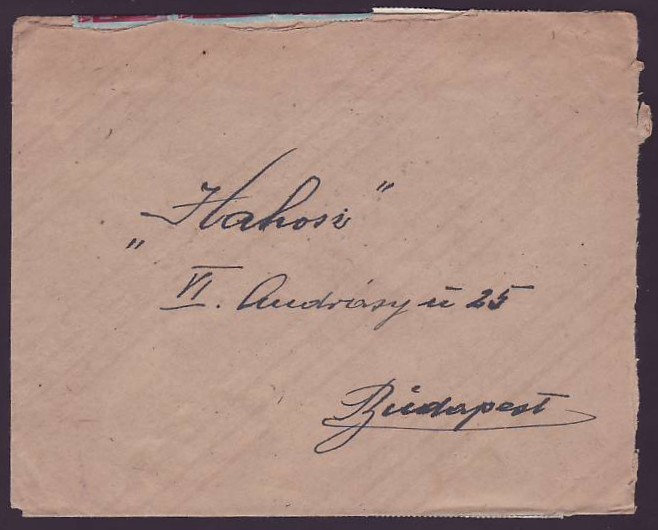 „Hahosz”
VI. Andrásy ú 25
Budapest